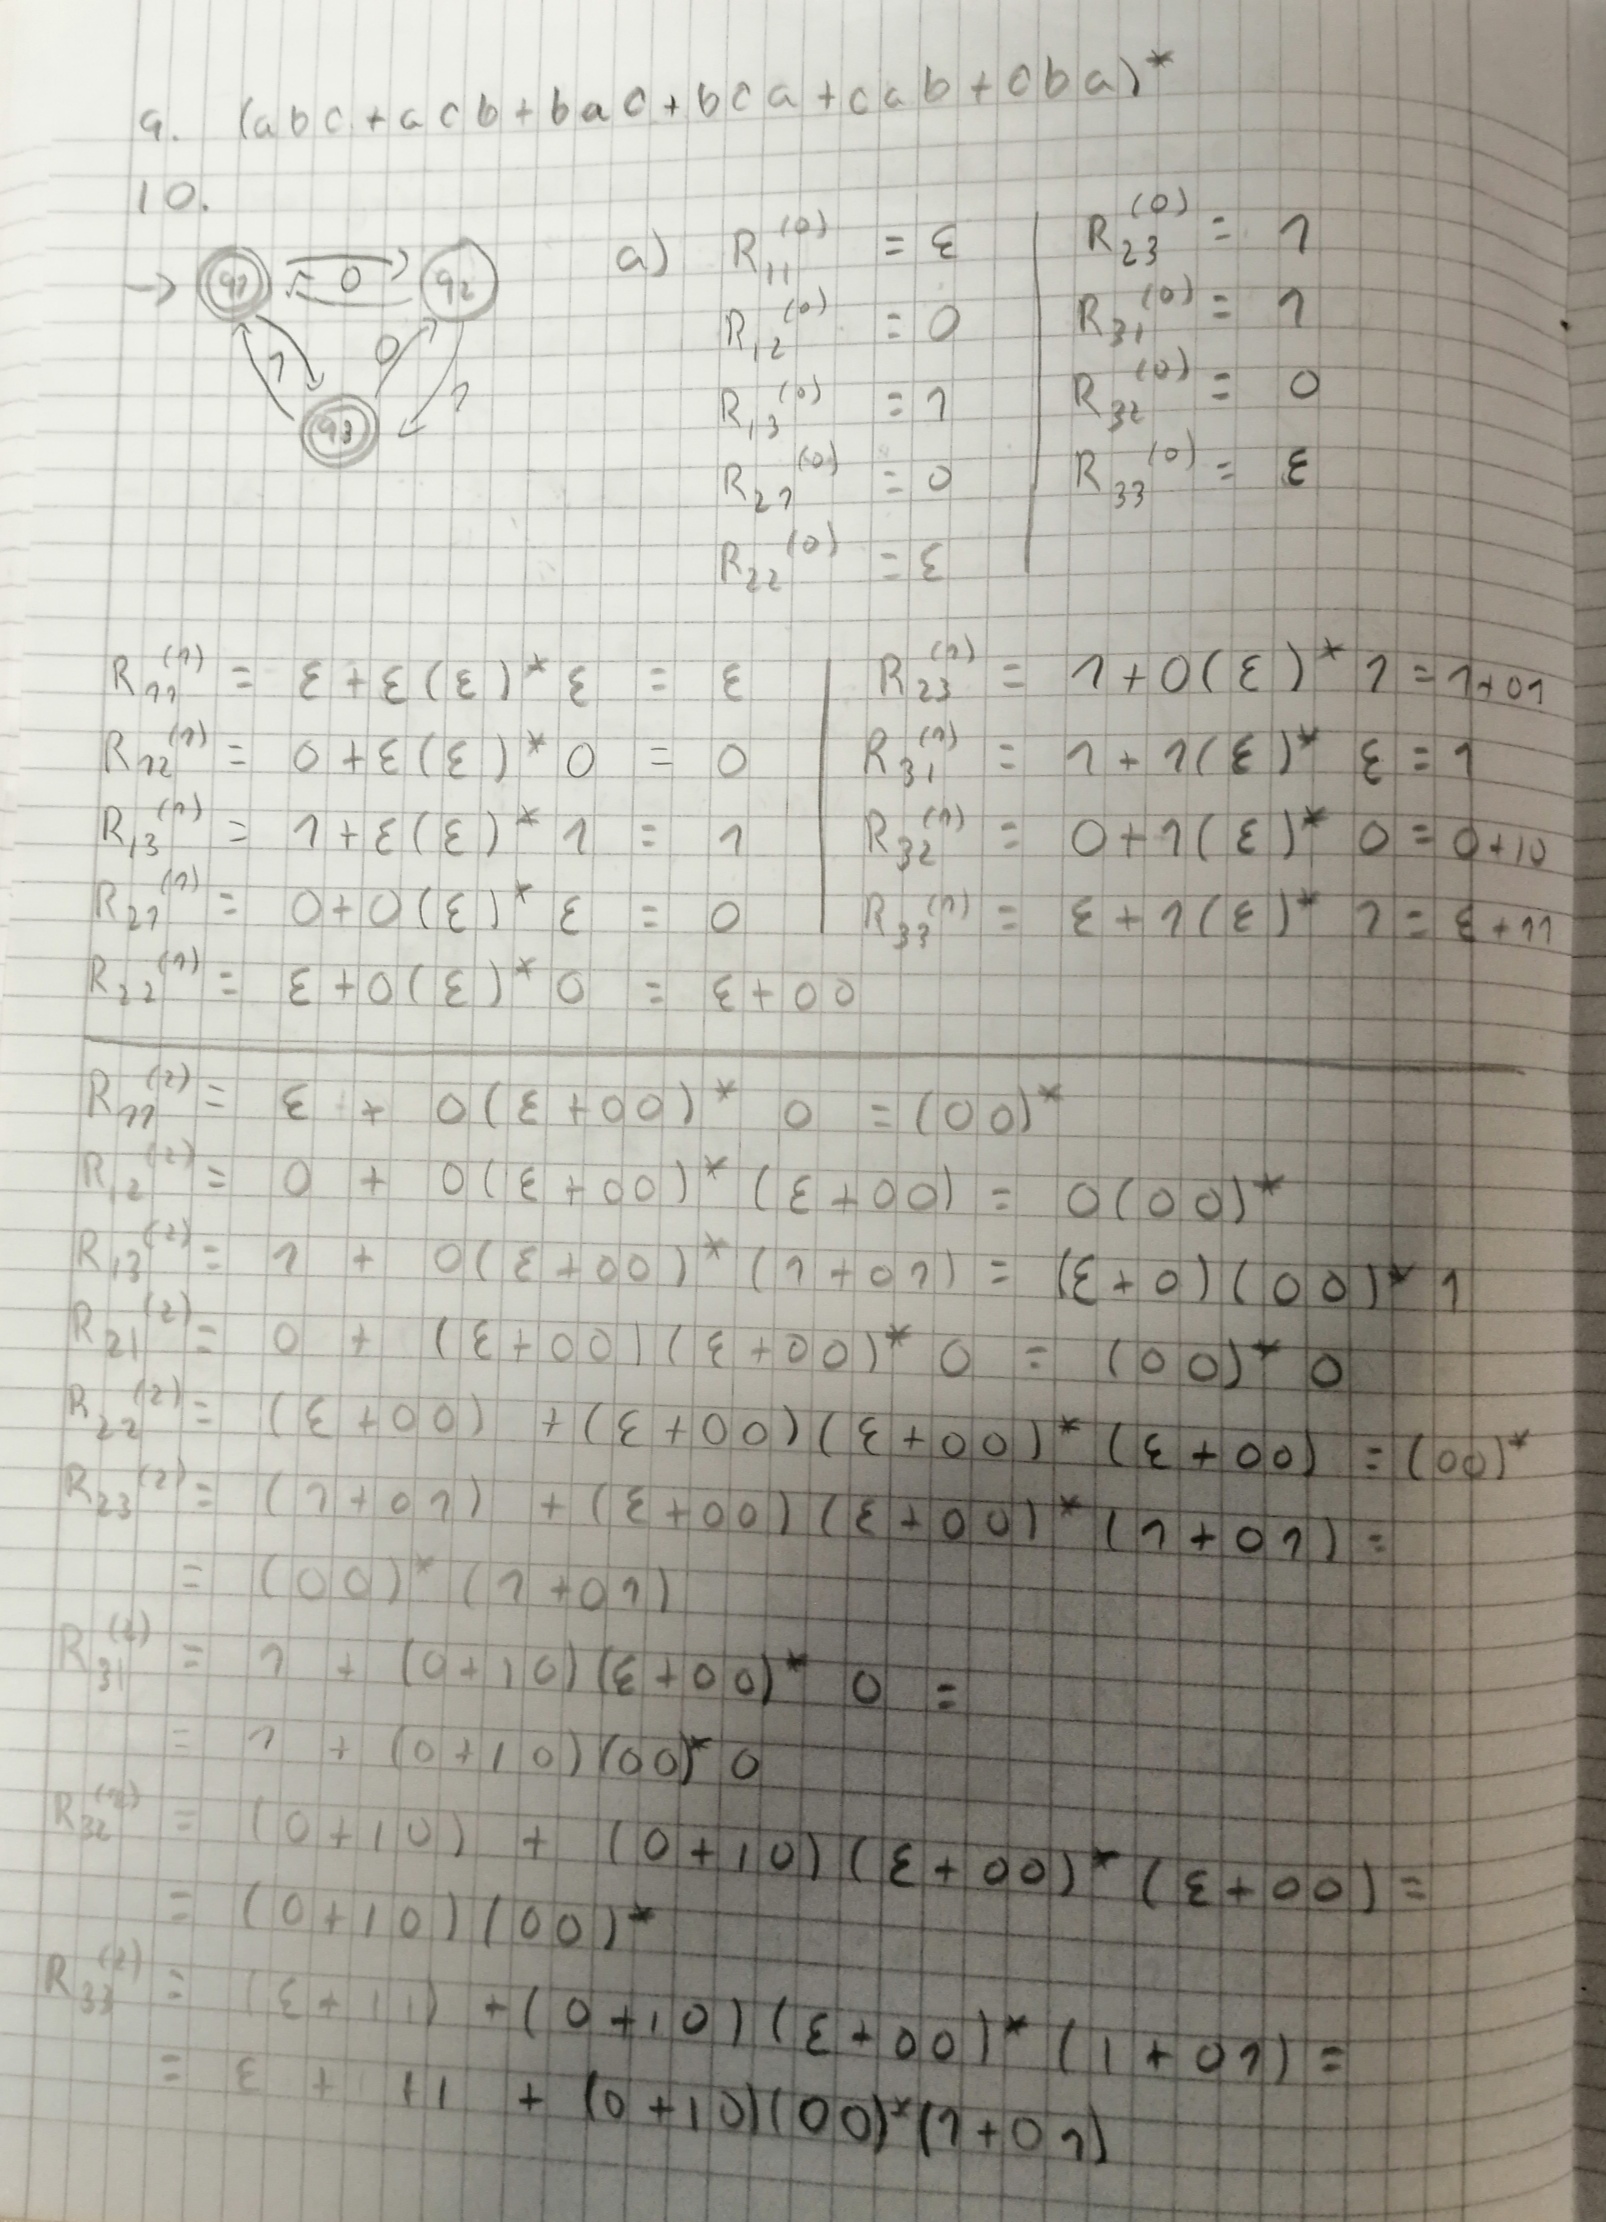 9. (abc+acb+bac+bca+cab+cba)*
10.
→ q1 0 q2
1 0 1
q3
a) R₁₁⁽⁰⁾ = ε
R₁₂⁽⁰⁾ = 0
R₁₃⁽⁰⁾ = 1
R₂₁⁽⁰⁾ = 0
R₂₂⁽⁰⁾ = ε
R₂₃⁽⁰⁾ = 1
R₃₁⁽⁰⁾ = 1
R₃₂⁽⁰⁾ = 0
R₃₃⁽⁰⁾ = ε
R₁₁⁽¹⁾ = ε+ε(ε)*ε = ε
R₁₂⁽¹⁾ = 0+ε(ε)*0 = 0
R₁₃⁽¹⁾ = 1+ε(ε)*1 = 1
R₂₁⁽¹⁾ = 0+0(ε)*ε = 0
R₂₂⁽¹⁾ = ε+0(ε)*0 = ε+00
R₂₃⁽¹⁾ = 1+0(ε)*1 = 1+01
R₃₁⁽¹⁾ = 1+1(ε)*ε = 1
R₃₂⁽¹⁾ = 0+1(ε)*0 = 0+10
R₃₃⁽¹⁾ = ε+1(ε)*1 = ε+11
R₁₁⁽²⁾ = ε + 0(ε+00)*0 = (00)*
R₁₂⁽²⁾ = 0 + 0(ε+00)*(ε+00) = 0(00)*
R₁₃⁽²⁾ = 1 + 0(ε+00)*(1+01) = (ε+0)(00)*1
R₂₁⁽²⁾ = 0 + (ε+00)(ε+00)*0 = (00)*0
R₂₂⁽²⁾ = (ε+00) + (ε+00)(ε+00)*(ε+00) = (00)*
R₂₃⁽²⁾ = (1+01) + (ε+00)(ε+00)*(1+01) =
= (00)*(1+01)
R₃₁⁽²⁾ = 1 + (0+10)(ε+00)*0 =
= 1 + (0+10)(00)*0
R₃₂⁽²⁾ = (0+10) + (0+10)(ε+00)*(ε+00) =
= (0+10)(00)*
R₃₃⁽²⁾ = (ε+11) + (0+10)(ε+00)*(1+01) =
= ε + 11 + (0+10)(00)*(1+01)